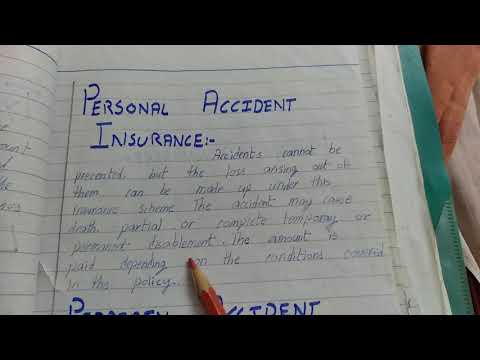 PERSONAL ACCIDENT
INSURANCE:-
Accidents cannot be
prevented, but the loss arising out of
them can be made up under this
insurance scheme. The accident may cause
death, partial or complete temporary or
permanent disablement. The amount is
paid depending on the conditions covered
in this policy.
ACCIDENT